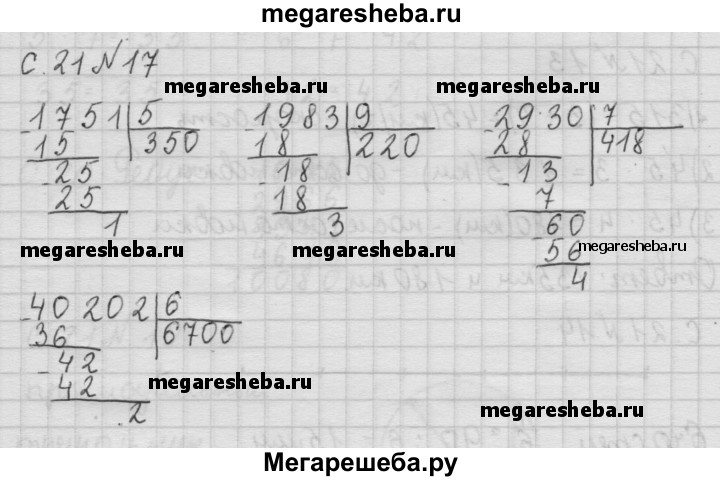 megaresheba.ru
С. 21 №17
megaresheba.ru megaresheba.ru
1751 5 1983 9 2930 7
15 350 18 220 28 418
25 18 13
25 18 7
1 3 60
megaresheba.ru megaresheba.ru megaresheba.ru
56
4
40202 6
36 6700
42
42 megaresheba.ru
2 megaresheba.ru
Мегарешеба.ру